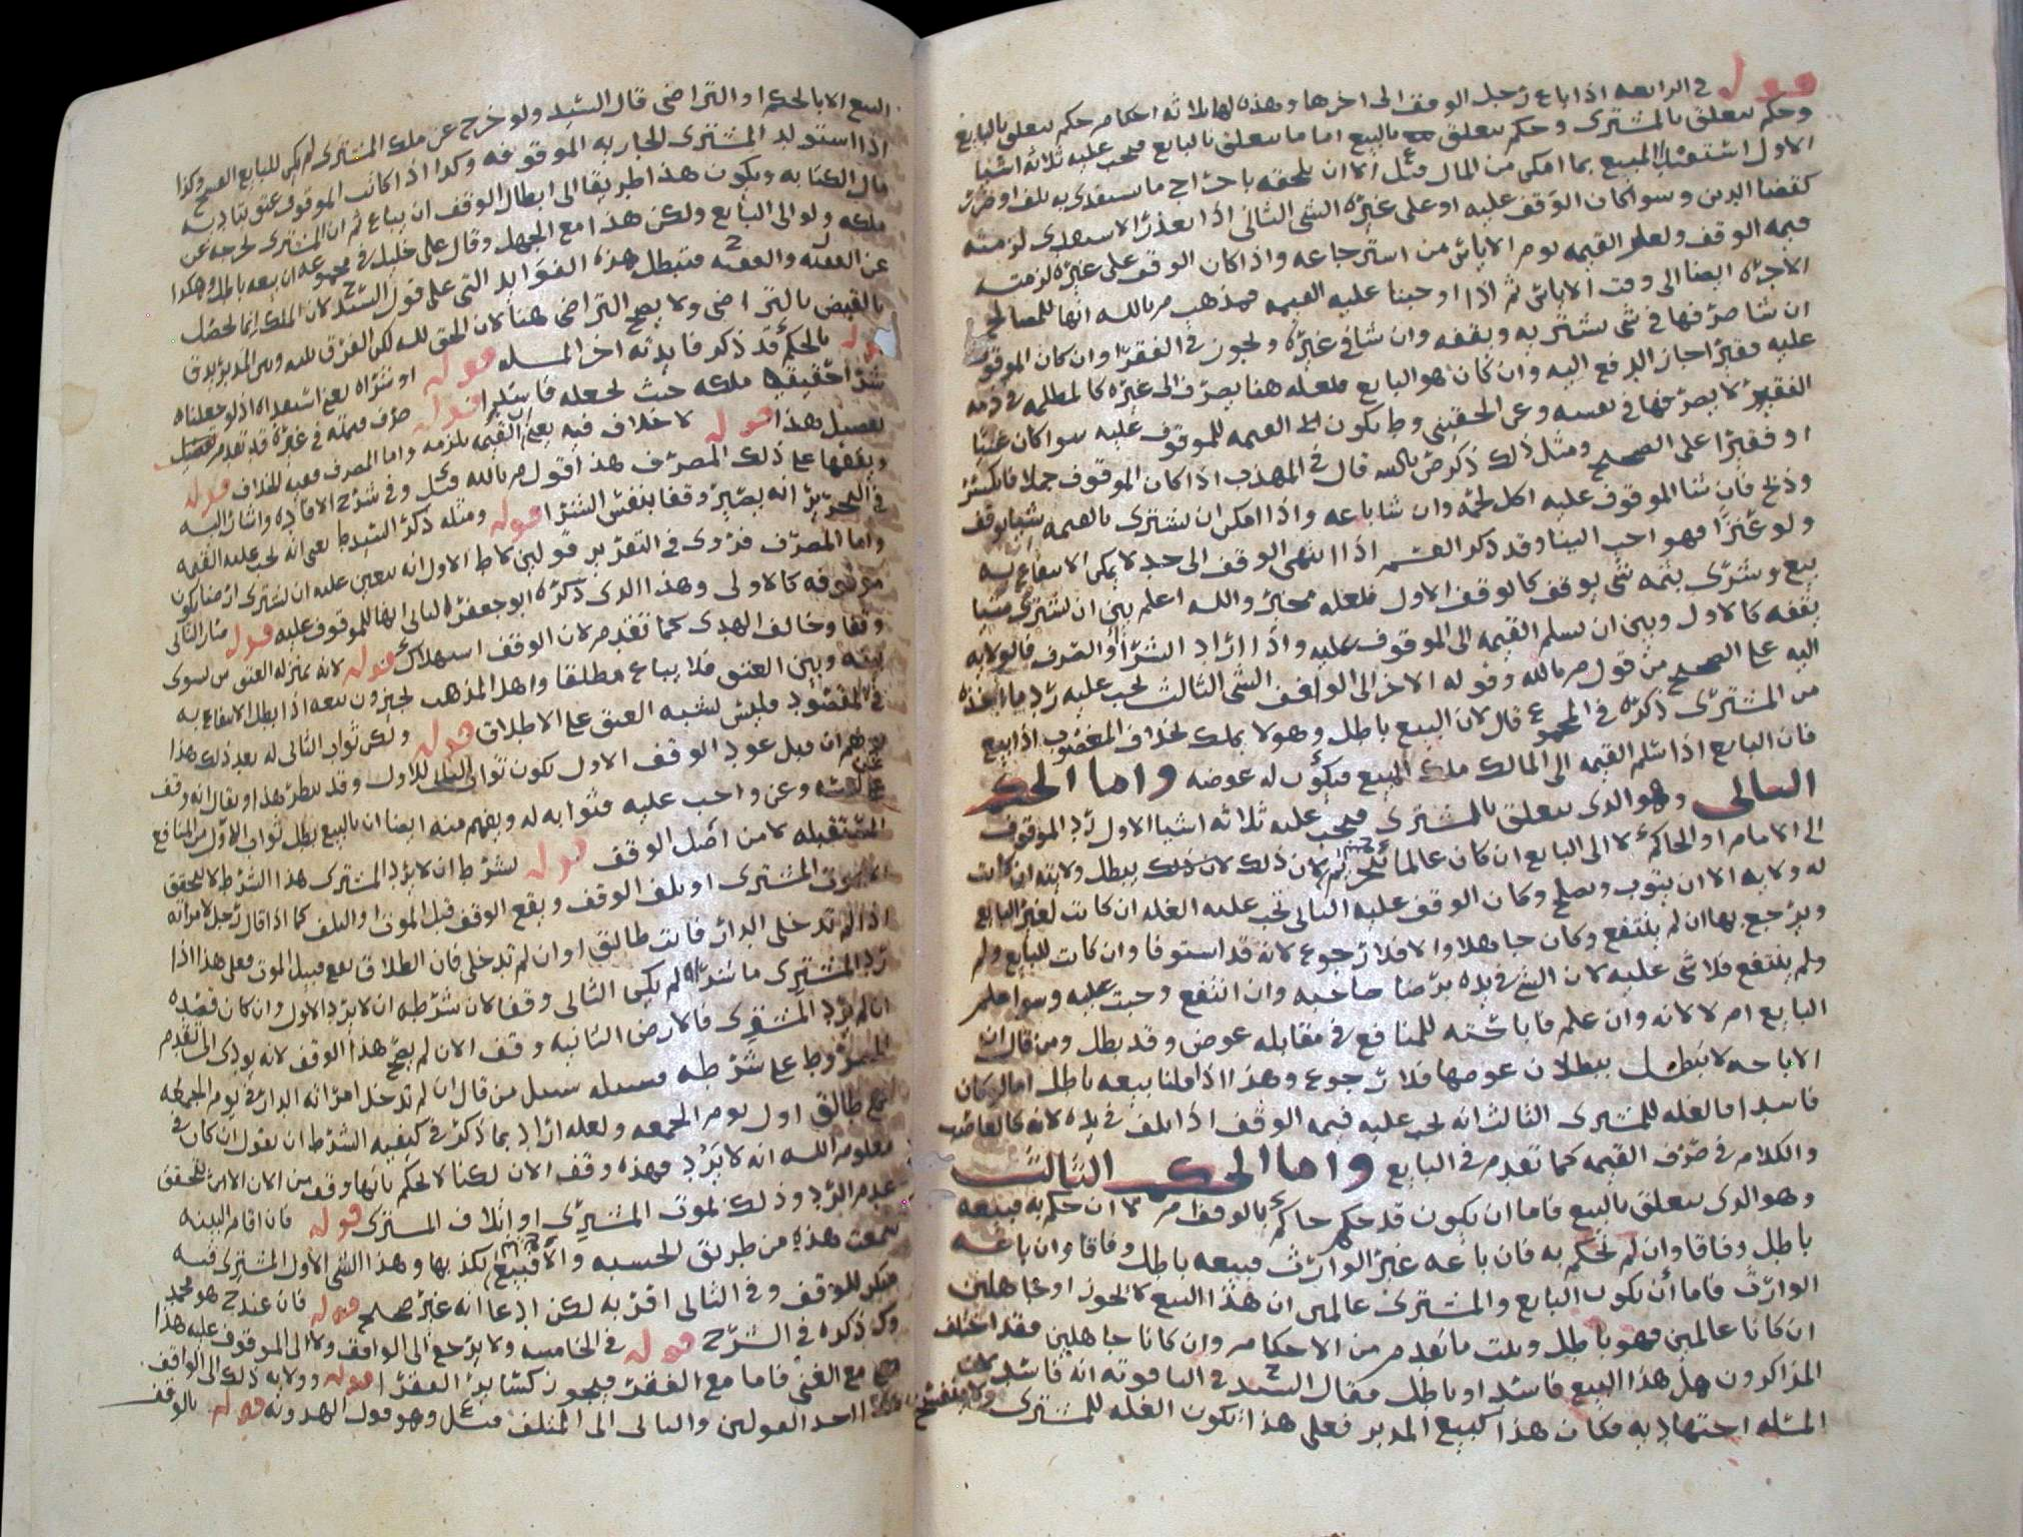 قوله في الرابعه اذا باع رجل الوقف الى اخرها وهذه لها ثلاثه احكام حكم يتعلق بالبايع
وحكم يتعلق بالمشترى وحكم يتعلق بالبيع اما ما يتعلق بالبايع فيجب عليه ثلاثه اشيا
الاول استفدا المبيع بما امكن من المال الا ان يلحقه باخراج ما يستفدى به تلف او ضرر
كقضا الدين وسوا كان الوقف عليه او على غيره الشي الثاني اذا تعذر الاستفدى لزمته
قيمه الوقف ولعل القيمه يوم الاياس من استرجاعه واذا كان الوقف على غيره لزمته
الاجره ايضا الى وقت الاياس ثم اذا اوجبنا عليه القيمه فمذهب م بالله انها للمصالح
ان شا صرفها في شى يشتر به ويقفه وان شا في غيره ويجوز في الفقرا وان كان الموقوف
عليه فقيرا جاز الدفع اليه وان كان هو البايع فلعله هنا يصرف الى غيره كالمظلمه في ذمه
الفقير لا يصرفها في نفسه وعن الحقيني وط يكون القيمه للموقوف عليه سوا كان غنيا
او فقيرا على الصحيح ومثل ذلك ذكر ض بالله قال في المهذب اذا كان الموقوف جملا فانكسر
وذبح فان شا الموقوف عليه اكل لحمه وان شا باعه واذا امكن ان يشترى بالقيمه شيا يوقف
ولو عنزا فهو احب الينا وقد ذكر القسم اذا انتهى الوقف الى حد لا يمكن الانتفاع به
بيع وشرى بثمنه شى يوقف كالوقف الاول فلعله مخير والله اعلم بين ان يشترى شيا
يقفه كالاول وبين ان يسلم القيمه الى الموقوف عليه واذا اراد الشرا او الصرف فالولايه
اليه على الصحيح من قول م بالله وقوله الاخر الى الواقف الشى الثالث يجب عليه رد ما اخذه
من المشترى ذكره في المجموع قال لان البيع باطل وهو لا يملك بخلاف المغصوب اذا بيع
فان البايع اذا سلم القيمه الى المالك ملك المبيع فيكون له عوضه واما الحكم
الثاني وهو الذى يتعلق بالمشترى فيجب عليه ثلاثه اشيا الاول رد الموقوف
الى الامام او الحاكم لا الى البايع ان كان عالما لان ذلك يبطل ولايته ان كانت
له ولايه الا ان يتوب ويصلح وكان الوقف عليه الثاني تجب عليه الغله ان كانت لغير البايع
ويرجع بها ان لم ينتفع وكان جاهلا والا فلا رجوع لانه قد استوفا وان كانت للبايع ولم
ولم ينتفع فلا شى عليه لان الشى في يده برضا صاحبه وان انتفع وجبت عليه وسوا علم
البايع ام لا لانه وان علم فاباحته للمنافع في مقابله عوض وقد بطل ومن قال ان
الاباحه لا تبطل ببطلان عوضها فلا رجوع وهذا اذا قلنا بيعه باطل اما لو كان
فاسدا فالغله للمشترى الثالث انه يجب عليه قيمه الوقف اذا تلف في يده لانه كالغاصب
والكلام في صرف القيمه كما تقدم في البايع واما الحكم الثالث
وهو الذى يتعلق بالبيع فاما ان يكون قد حكم حاكم بالوقف ام لا ان حكم به فبيعه
باطل وفاقا وان لم يحكم به فان باعه غير الوارث فبيعه باطل وفاقا وان باعه
الوارث فاما ان يكون البايع والمشترى عالمين ان هذا البيع لا يجوز او جاهلين
ان كانا عالمين فهو باطل ويثبت ما تقدم من الاحكام وان كانا جاهلين فقد اختلف
المذاكرون هل هذا البيع فاسد او باطل فقال السيد ح في الياقوته انه فاسد لان
المسله اجتهاديه فكان هذا كبيع المدبر فعلى هذا تكون الغله للمشترى ولا ينفسخ
البيع الا بالحكم او التراضى قال السيد ولو خرج عن ملك المشترى لم يكن للبايع الفسخ وكذا
اذا استولد المشترى الجاريه الموقوفه وكذا اذا كانت الموقوف عتق بتاديه
مال الكتابه ويكون هذا طريقا الى ابطال الوقف ان يباع ثم ان المشترى يخرجه عن
ملكه ولو الى البايع ولكن هذا مع الجهل وقال على خليل في مجموعه ان بيعه باطل وهكذا
عن الفقيه والفقيه فتبطل هذه الفوايد التي على قول السيد ح لان الملك انما يحصل
بالقبض بالتراضى ولا يصح التراضى هنا لان الحق لله لكن الفرق بينه وبين المدبر يدق
قوله بالحكم قد ذكر فايدته اخر المسله قوله او شراه يعنى استفداه اذ لو جعلناه
شرا حقيقيا ملكه حيث يجعله فاسدا قوله صرف قيمته في غيره قد تقدم تفصيل
تفصيل هذا قوله لا خلاف فيه يعنى ان القيمه تلزمه واما المصرف ففيه الخلاف قوله
ويقفها على ذلك المصرف هذا قول م بالله وفي شرح الافاده واشار اليه
في التحرير انه يصير وقفا بنفس الشرا قوله ومثله ذكر السيد ط يعنى انه يجب عليه القيمه
واما المصرف فروى في التقرير قولين لا ط الاول انه يتعين عليه ان يشترى ارضا يكون
موقوفه كالاولى وهذا الذى ذكره ابو جعفر الثاني انها للموقوف عليه قوله صار الثاني
وقفا وخالف الهدى كما تقدم لان الوقف استهلاك قوله لانه بمنزله العتق من يسوى
بينه وبين العتق فلا يباع مطلقا واهل المذهب يجيزون بيعه اذا بطل الانتفاع به
في المقصود فليس يشبه العتق على الاطلاق قوله ولكن ثواب الثاني له بعد ذلك هذا
يوهم ان قبل عود الوقف الاول يكون ثواب للاول وقد ينظر هذا ويقال انه وقف
وعن واجب عليه فثوابه له ويفهم منه ايضا ان بالبيع يبطل ثواب الاول من المنافع
المستقبله لا من اصل الوقف قوله بشرط ان لا يرد المشترى هذا الشرط لا يتحقق
الا بموت المشترى او تلف الوقف ويقع الوقف قبل الموت والتلف كما اذا قال رجل لامراته
اذا لم تدخلى الدار فانت طالق او ان لم تدخلى فان الطلاق يقع قبيل الموت فعلى هذا اذا
رد المشترى ما شراه لم يكن الثاني وقفا لان شرطه ان لا يرد الاول وان كان قصده
ان لم يرد المشترى فالارض الثانيه وقف الان لم يصح هذا الوقف لانه يودى الى تقدم
المشروط على شرطه فسبيله سبيل من قال ان لم تدخل امراته الدار في يوم الجمعه
فهى طالق اول يوم الجمعه ولعله اراد بما ذكر في كيفيه الشرط ان يقول ان كان في
معلوم الله انه لا يرد فهذه وقف الان لكنا لا نحكم بانها وقف من الان الا ان يتحقق
عدم الرد وذلك بموت المشترى او اتلاف المشترى قوله فان اقام البينه
سمعت هذه من طريق الحسبه والا فبيع يكذبها وهذا الشى الاول المشترى فيه
منكر للوقف وفي الثاني اقر به لكن ادعا انه غير صحيح قوله فان عند ح هو محمد
وكذ ذكره في الشرح قوله في الخامسه ولا يرجع الى الواقف ولا الى الموقوف عليه هذا
مع الغنى فاما مع الفقر فيجوز كساير الفقرا قوله وولايه ذلك الى الواقف
احد القولين والثاني الى المتلف وهو قول الهدويه قوله بالوقف